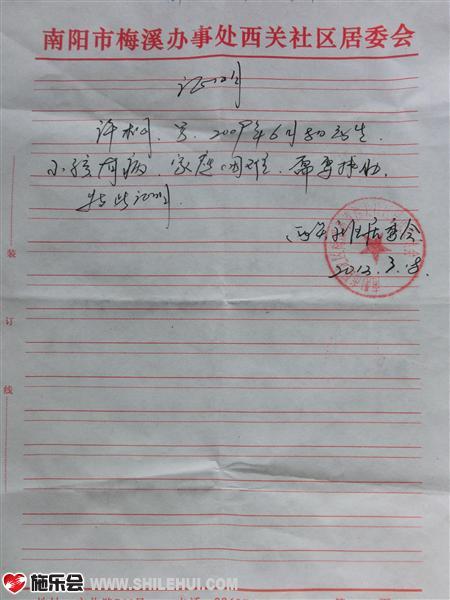 南阳市梅溪办事处西关社区居委会
证明
2009年6月30日生
小孩有病.家庭困难.需要扶助.
特此证明
西关社区居委会
2013.3.18.
装
订
线
施乐会
WWW.SHILEHUI.COM